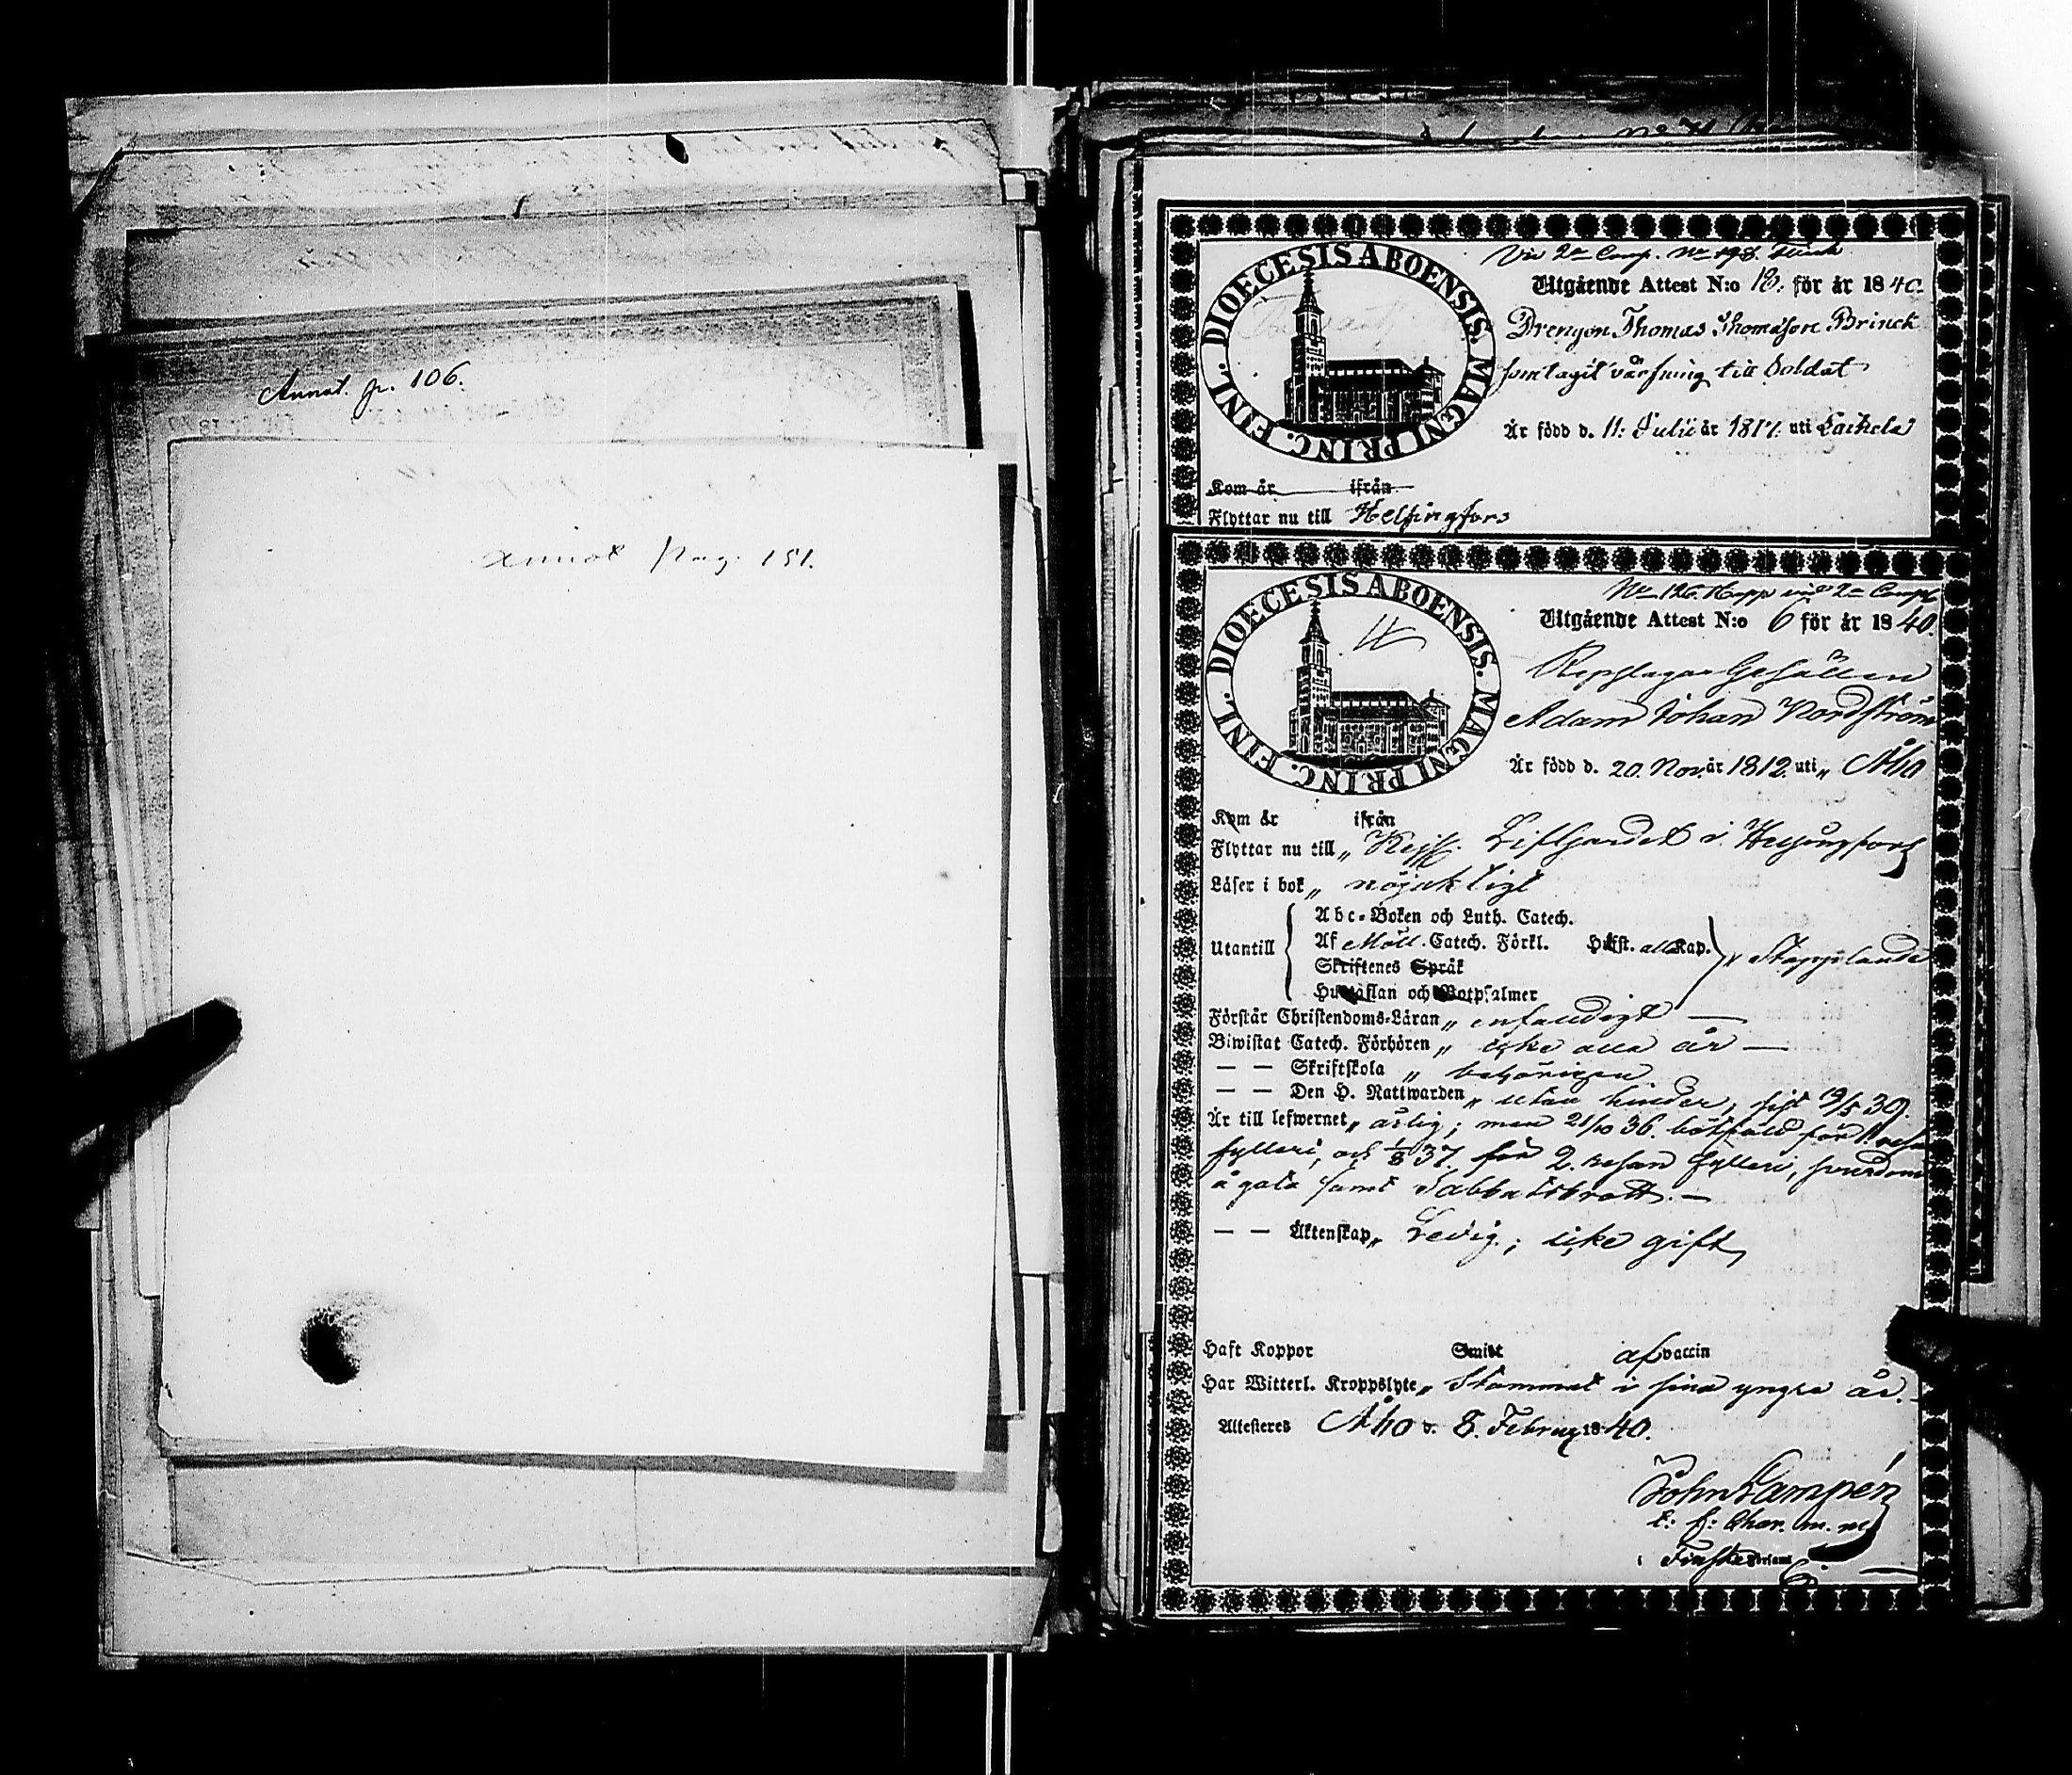 Annot. p. 106.
Annot pag. 151.
Vid 2a Comp. No 198. Finck
DIOECESIS ABOENSIS. MAGNI PRINC. FINL.
Utgående Attest N:o 18. för år 1840.
Drengen Thomas Thomasson Brinck
som tagit värfning till Soldat
Är född d. 11: Julii år 1817. uti
Kom år ifrån
Flyttar nu till Helsingfors
No 126. Kopp vid 2a Comp
DIOECESIS ABOENSIS. MAGNI PRINC. FINL.
Utgående Attest N:o 6 för år 1840.
Repslagar Gesällen
Adam Johan Nordström
Är född d. 20. Nov. år 1812. uti „ Åbo
Kom år ifrån
Flyttar nu till „ Kejs. Lifgardet i Helsingfors
Läser i bok „ nöjaktigt
Utantill
Abc-Boken och Luth. Catech.
Af Möll. Catech. Förkl. Hufst. alla Kap. „ Stapplande
Skriftenes Språk
Hustaflan och Botpsalmer
Förstår Christendoms-Läran „ enfaldigt —
Biwistat Catech. Förhören „ icke alla år —
— — Skriftskola „ behörigen
— — Den H. Nattwarden „ utan hinder, sist 19/5 39.
Är till lefwernet „ ärlig; men 21/10 36. bötfäld för 1. resan
fylleri, och 1/8 37. för 2. resan fylleri, svordom
å gata samt Sabbatsbrott. —
— — Äktenskap „ Ledig; icke gift
Haft Koppor Smitt af vaccin
Har Witterl. Kroppslyte „ Stammat i sina yngre år. —
Attesteres Åbo d. 8. Februarii 1840.
Joh. Lampén
t: f: Cham. m. m.
i Finska Församl.